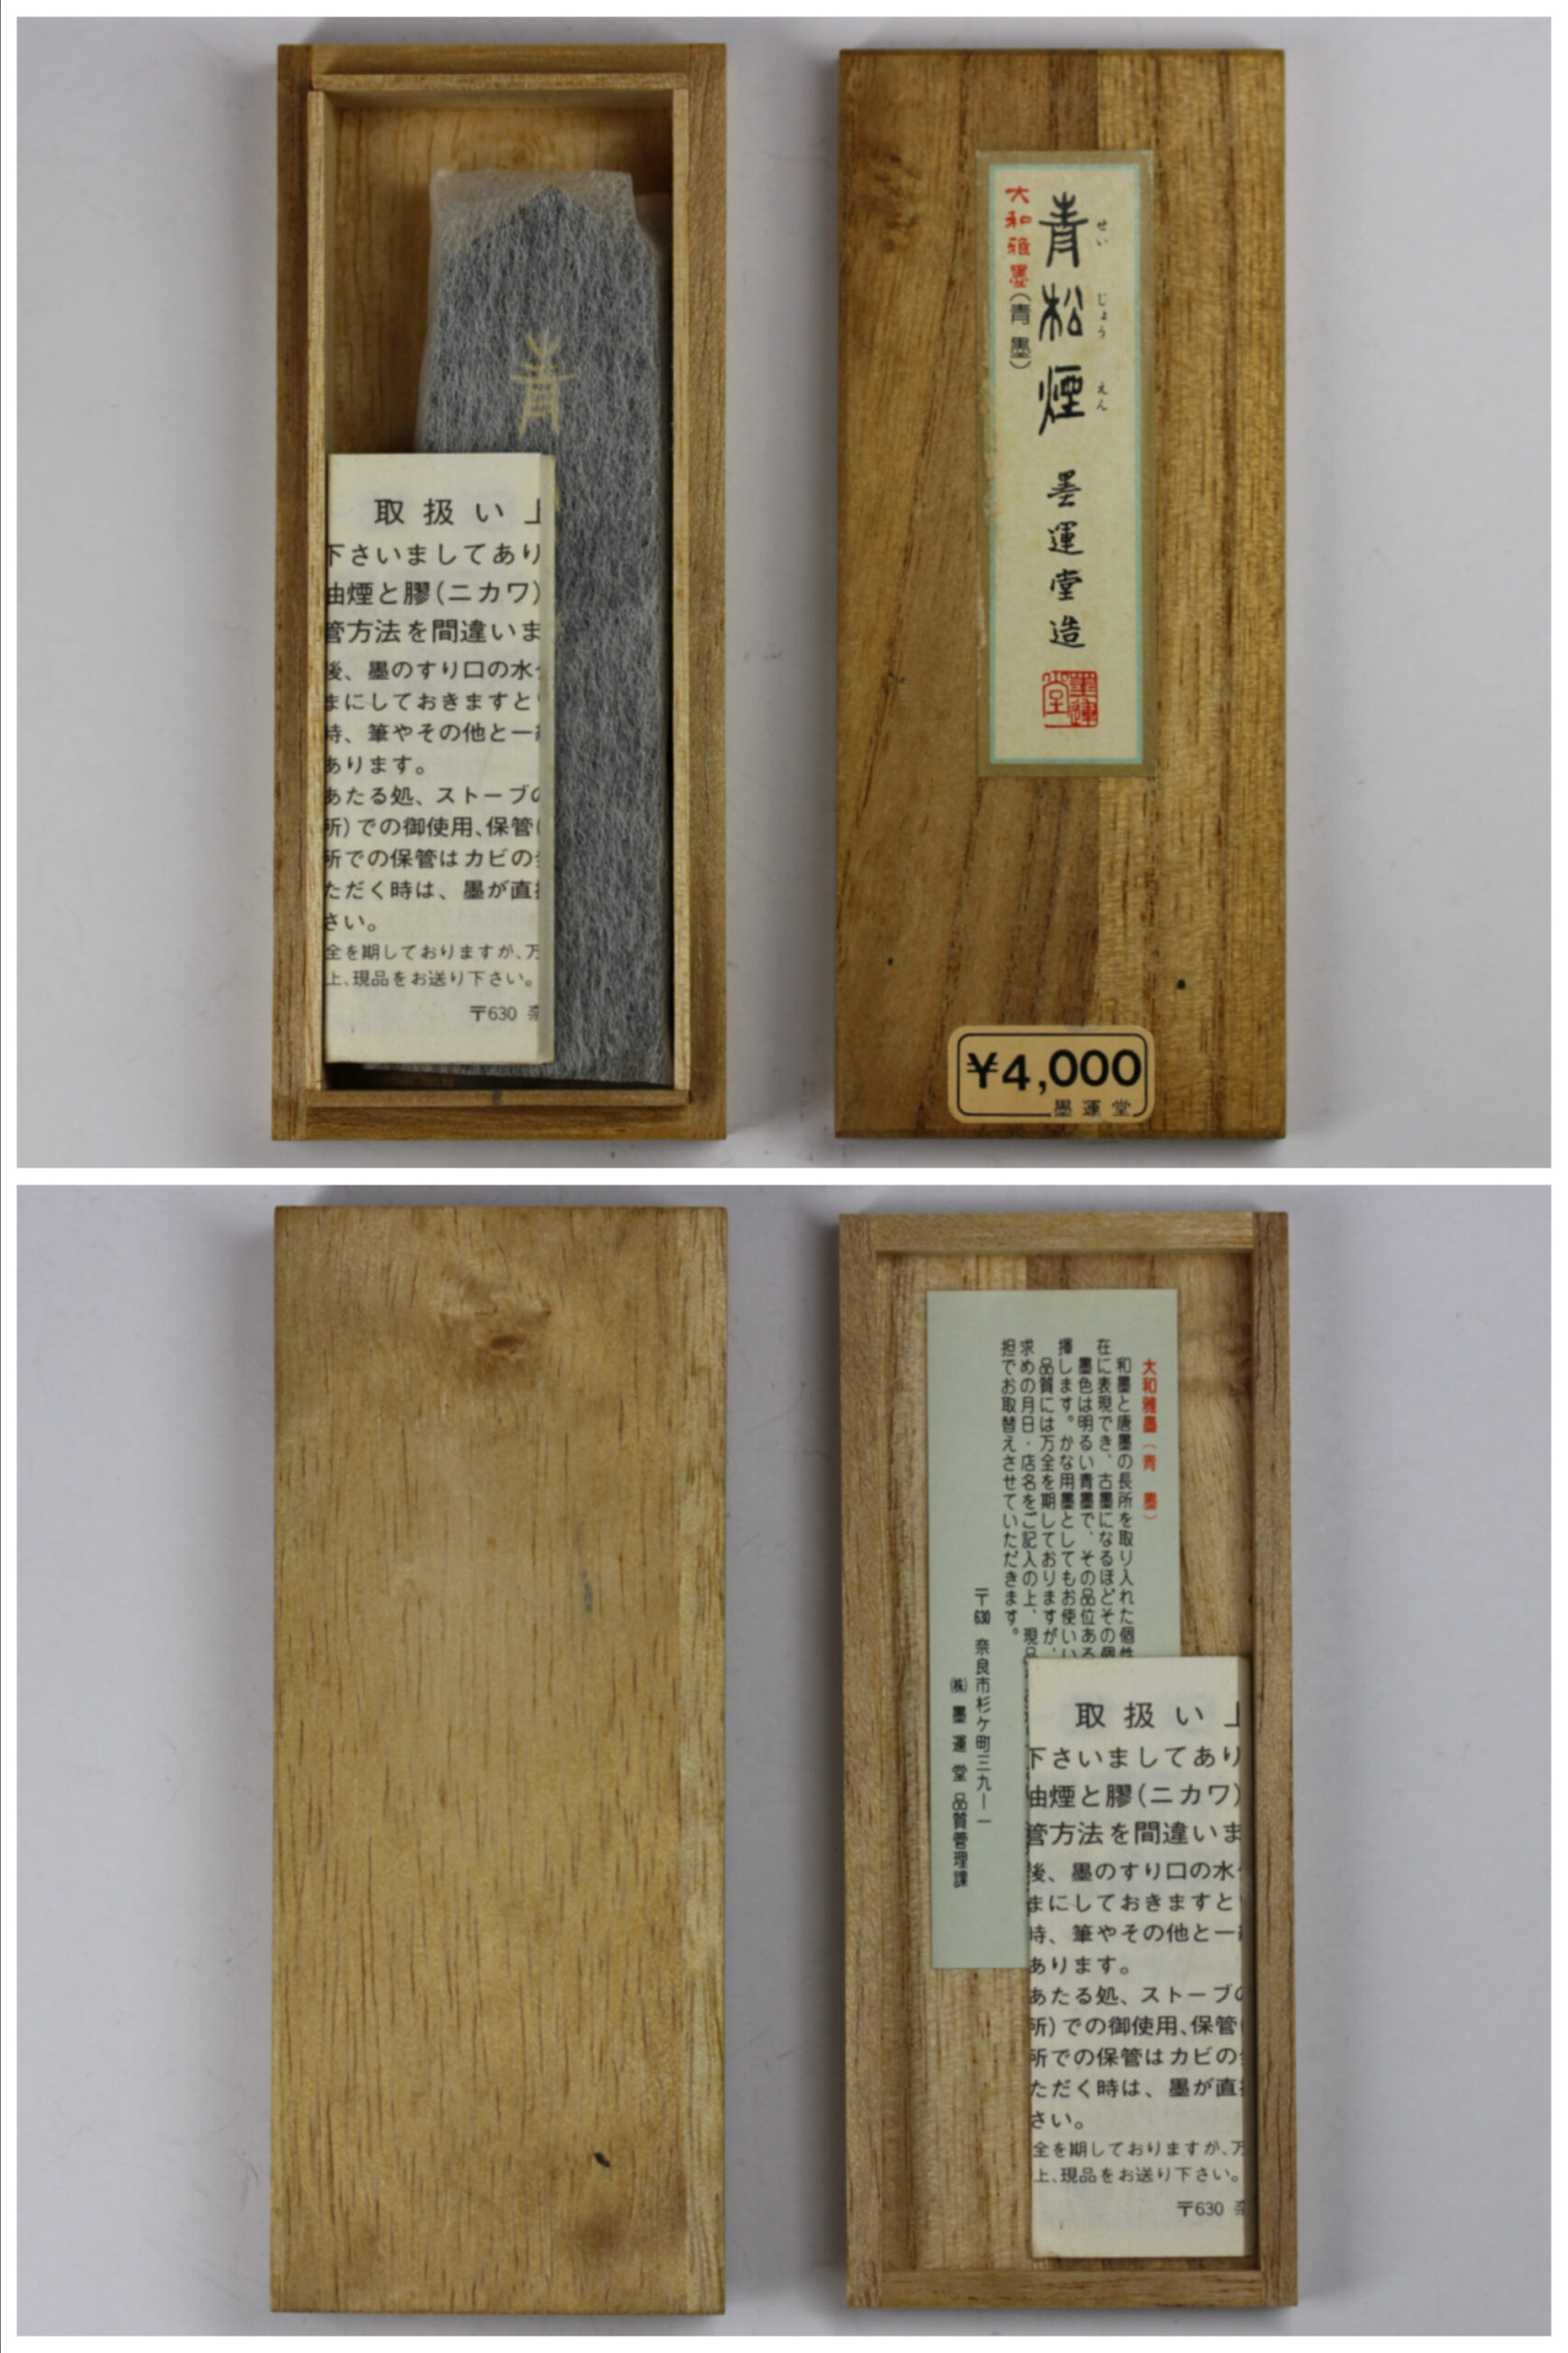 青
取扱い上
下さいましてあり
油煙と膠(ニカワ)
管方法を間違いま
後、墨のすり口の水
まにしておきますと
時、筆やその他と一
あります。
あたる処、ストーブの
所)での御使用、保管
所での保管はカビの
ただく時は、墨が直
さい。
全を期しておりますが、万
上、現品をお送り下さい。
〒630
せいじょうえん
青松煙 墨運堂造
大和雅墨(青墨)
墨運堂
¥4,000
墨運堂
大和雅墨(青 墨)
和墨と唐墨の長所を取り入れた個性
在に表現でき、古墨になるほどその個
墨色は明るい青墨で、その品位ある
揮します。かな用墨としてもお使いい
品質には万全を期しておりますが、
求めの月日・店名をご記入の上、現品
担でお取替えさせていただきます。
〒630 奈良市杉ケ町三九ー一
㈱墨運堂品質管理課
取扱い上
下さいましてあり
油煙と膠(ニカワ)
管方法を間違いま
後、墨のすり口の水
まにしておきますと
時、筆やその他と一
あります。
あたる処、ストーブの
所)での御使用、保管
所での保管はカビの
ただく時は、墨が直
さい。
全を期しておりますが、万
上、現品をお送り下さい。
〒630